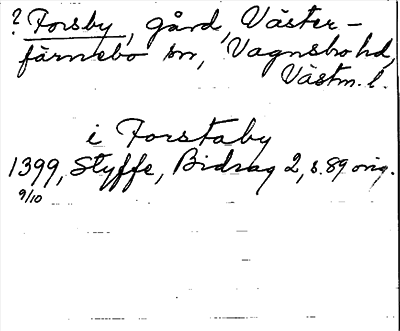 ? Forsby, gård, Väster-
färnebo sn, Vagnsbro hd,
Västm. l.
i Forstaby
1399, Styffe, Bidrag 2, s. 89 orig.
9/10